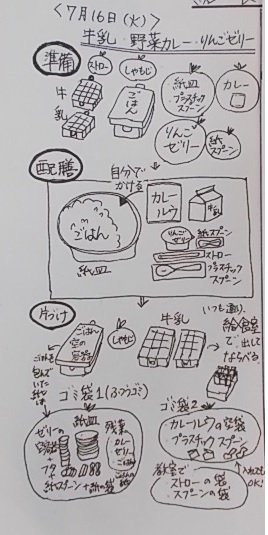 <7月16日(火)>
牛乳 野菜カレー・りんごゼリー
準備
ストロー
しゃもじ
牛乳
ごはん
紙皿
プラスチック
スプーン
カレー
りんご
ゼリー
紙
スプーン
配膳
自分で
かける
ごはん
紙皿
カレー
ルウ
牛乳
りんご
ゼリー
紙スプーン
ストロー
プラスチック
スプーン
片づけ
ごはん
空の
容器
しゃもじ
牛乳
いつも通り、
給食室
で出して
ならべる。
ごはんを
包んで
いた
紙など
ゴミ袋1(ふつうゴミ)
ゼリーの
容器
+
フタ
+
紙スプーン+紙の袋
紙皿
残菜
カレー
ゼリー
ごはん
ゴミ袋2
カレールウの空袋
プラスチックスプーン
教室で
ストローの袋
スプーンの袋
入れても
OK!